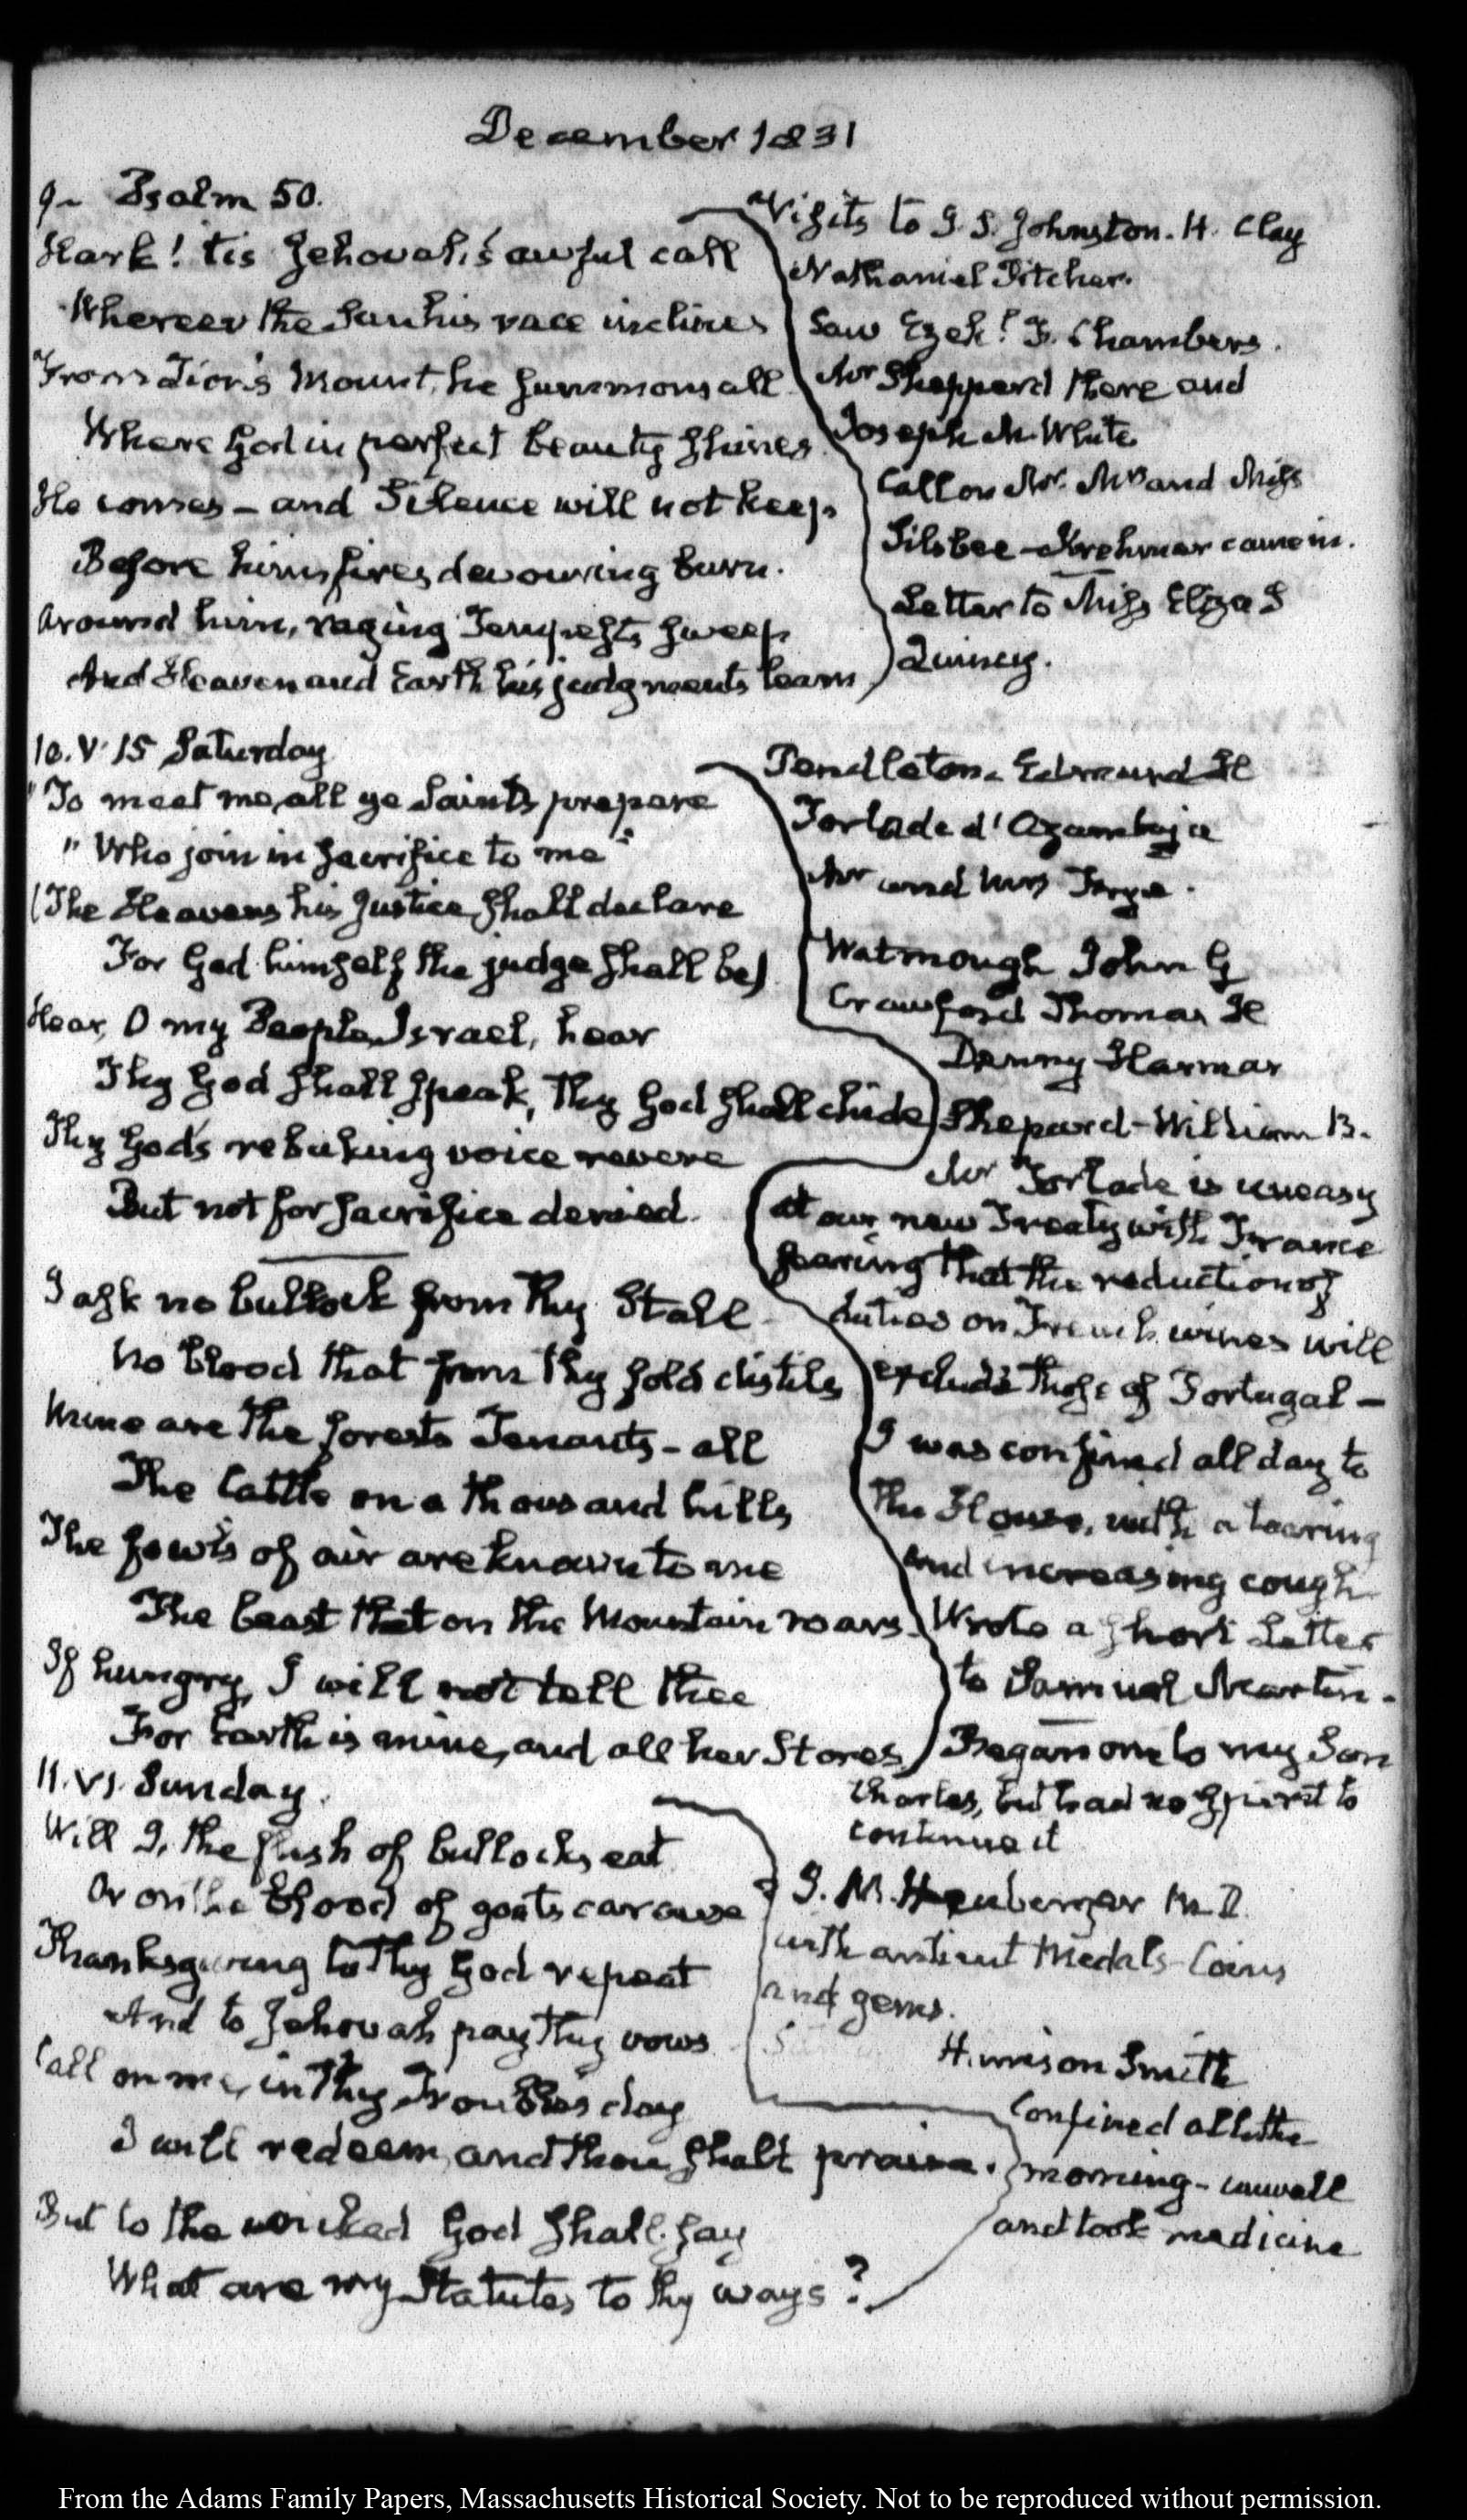 December 1831
9~ Psalm 50.
Hark! tis Jehovah's awful call
Whereer the Sun his race inclines
From Zion's Mount, he summons all
Where God in perfect beauty shines
He comes – and Silence will not keep
Before him fires devouring burn.
Around him, raging Tempests sweep
And Heaven and Earth his judgments learn
Visits to J. S. Johnston. H. Clay
Nathaniel Pitcher.
Saw Ezekl. F. Chambers.
Mr Shepperd there and
Joseph M. White
Call on Mr. Mrs and Miss
Silsbee – Krehmer came in.
Letter to Miss Eliza S
Quincy.
10. V. 15 Saturday
"To meet me, all ye Saints prepare
"Who join in sacrifice to me"
(The Heavens his Justice shall declare
For God himself the judge shall be)
Hear, O my People, Israel, hear
Thy God shall speak, thy God shall chide
Thy God's rebuking voice revere
But not for sacrifice denied.
I ask no bullock from thy Stall
No blood that from thy fold distils
Mine are the forests Tenants – all
The Cattle on a thousand hills
The fowls of air are known to me
The beast that on the Mountain roars.
If hungry, I will not tell thee
For Earth is mine, and all her Stores
Pendleton. Edmund H
Torlade d'Azambuja
Mr and Mrs
Watmough John G
Crawford Thomas H
Denny Harmar
Shepard – William B.
Mr Torlade is uneasy
at our new Treaty with France
fearing that the reduction of
duties on French wines will
exclude those of Portugal –
I was confined all day to
the House, with a tearing
and increasing cough
Wrote a short Letter
to Samuel Martin.
Began one to my Son
Charles, but had no spirit to
continue it
11. VI. Sunday.
Will I, the flesh of bullocks eat
Or on the blood of goats carouse
Thanksgiving to thy God repeat
And to Jehovah pay thy vows
Call on me, in thy Troubles day
I will redeem, and thou shalt praise.
But to the wicked God shall say
What are my Statutes to thy ways?
J. M. M.D.
with antient Medals – Coins
and gems.
Harrison Smith
Confined all the
morning – unwell
and took medicine
From the Adams Family Papers, Massachusetts Historical Society. Not to be reproduced without permission.